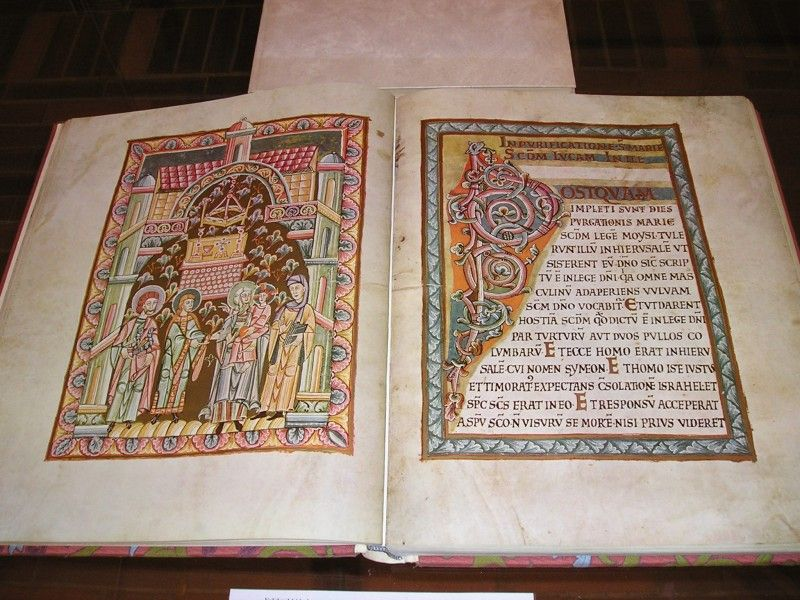 IN PURIFICATIONE S MARIE
SCDM LVCAM IN ILL
POSTQVAM
IMPLETI SVNT DIES
PVRGATIONIS MARIE
SCDM LEGE MOYSI TVLE
RVNT ILLV̄ IN HIERVSALE VT
SISTERENT EV̄ DNO SIC̄ SCRIP
TV̄ Ē IN LEGE DNI QA OMNE MAS
CVLINV̄ ADAPERIENS VVLVAM
SCM DNO VOCABIT̄ ET VT DARENT
HOSTIĀ SCDM QD̄ DICTV̄ Ē IN LEGE DNI
PAR TVRTVRV̄ AVT DVOS PVLLOS CO
LVMBARV̄ ET ECCE HOMO ERAT IN HIERV
SALĒ CVI NOMEN SYMEON ET HOMO ISTE IVSTVS
ET TIMORAT9 EXPECTANS C̄SOLATIONĒ ISRAHEL ET
SPC̄ SC̄S ERAT IN EO ET RESPONSV̄ ACCEPERAT
A SPV̄ SC̄O N̄ VISVRV̄ SE MORTĒ NISI PRIVS VIDERET